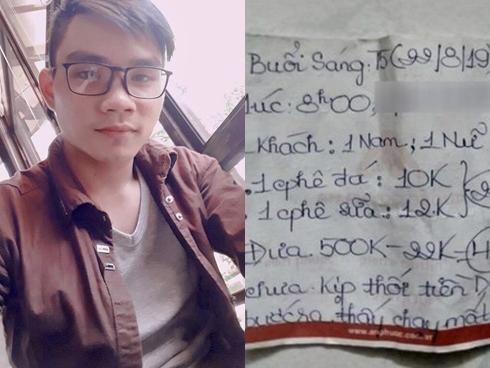 Buổi Sáng: T5 (22/8/19
lúc: 8h00,
Khách: 1 Nam, 1 Nữ
. 1 cphê đá: 10K
. 1 cphê sữa: 12K
Đưa 500K - 22K -
chưa kịp thối tiền
bước ra thấy chạy mất
www.anphuoc.com.vn